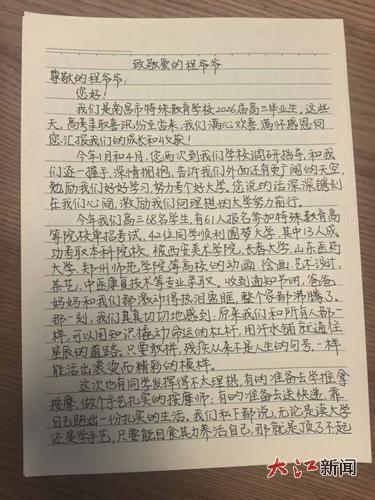 致敬爱的程爷爷
尊敬的程爷爷：
您好！
我们是南昌市特殊教育学校2026届高三毕业生，这些
天，高考录取喜讯纷至沓来，我们满心欢喜、满怀感恩向
您汇报我们的成长和收获！
今年1月和4月，您两次到我们学校调研指导，和我
们逐一握手、深情拥抱，告诉我们外面还有更广阔的天空，
勉励我们好好学习，努力考个好大学。您说的话深深镌刻
在我们心间，激励我们向理想的大学努力前行。
今年我们高三68名学生，有61人报名参加特殊教育高
等院校单招考试，42位同学顺利圆梦大学，其中13人成
功考取本科院校，被西安美术学院、长春大学、山东医药
大学、郑州师范学院等高校的动画、绘画、艺术设计、
茶艺、中医康复技术等专业录取。收到通知书时，爸爸
妈妈和我们都激动得热泪盈眶，整个家都沸腾了。
那一刻，我们真真切切地感到，原来我们和所有人都一
样，可以用知识撬动命运的杠杆，用汗水铺就通往
星辰的道路。只要敢拼，残疾从来不是人生的句号，一样
能活出滚烫而精彩的模样。
这次也有同学发挥得不太理想，有的准备去学推拿
按摩，做个手艺扎实的按摩师；有的准备去送快递，靠
自己跑出一份扎实的生活。我们私下都说，无论是读大学
还是学手艺，只要能自食其力养活自己，那就是顶了不起
大江新闻